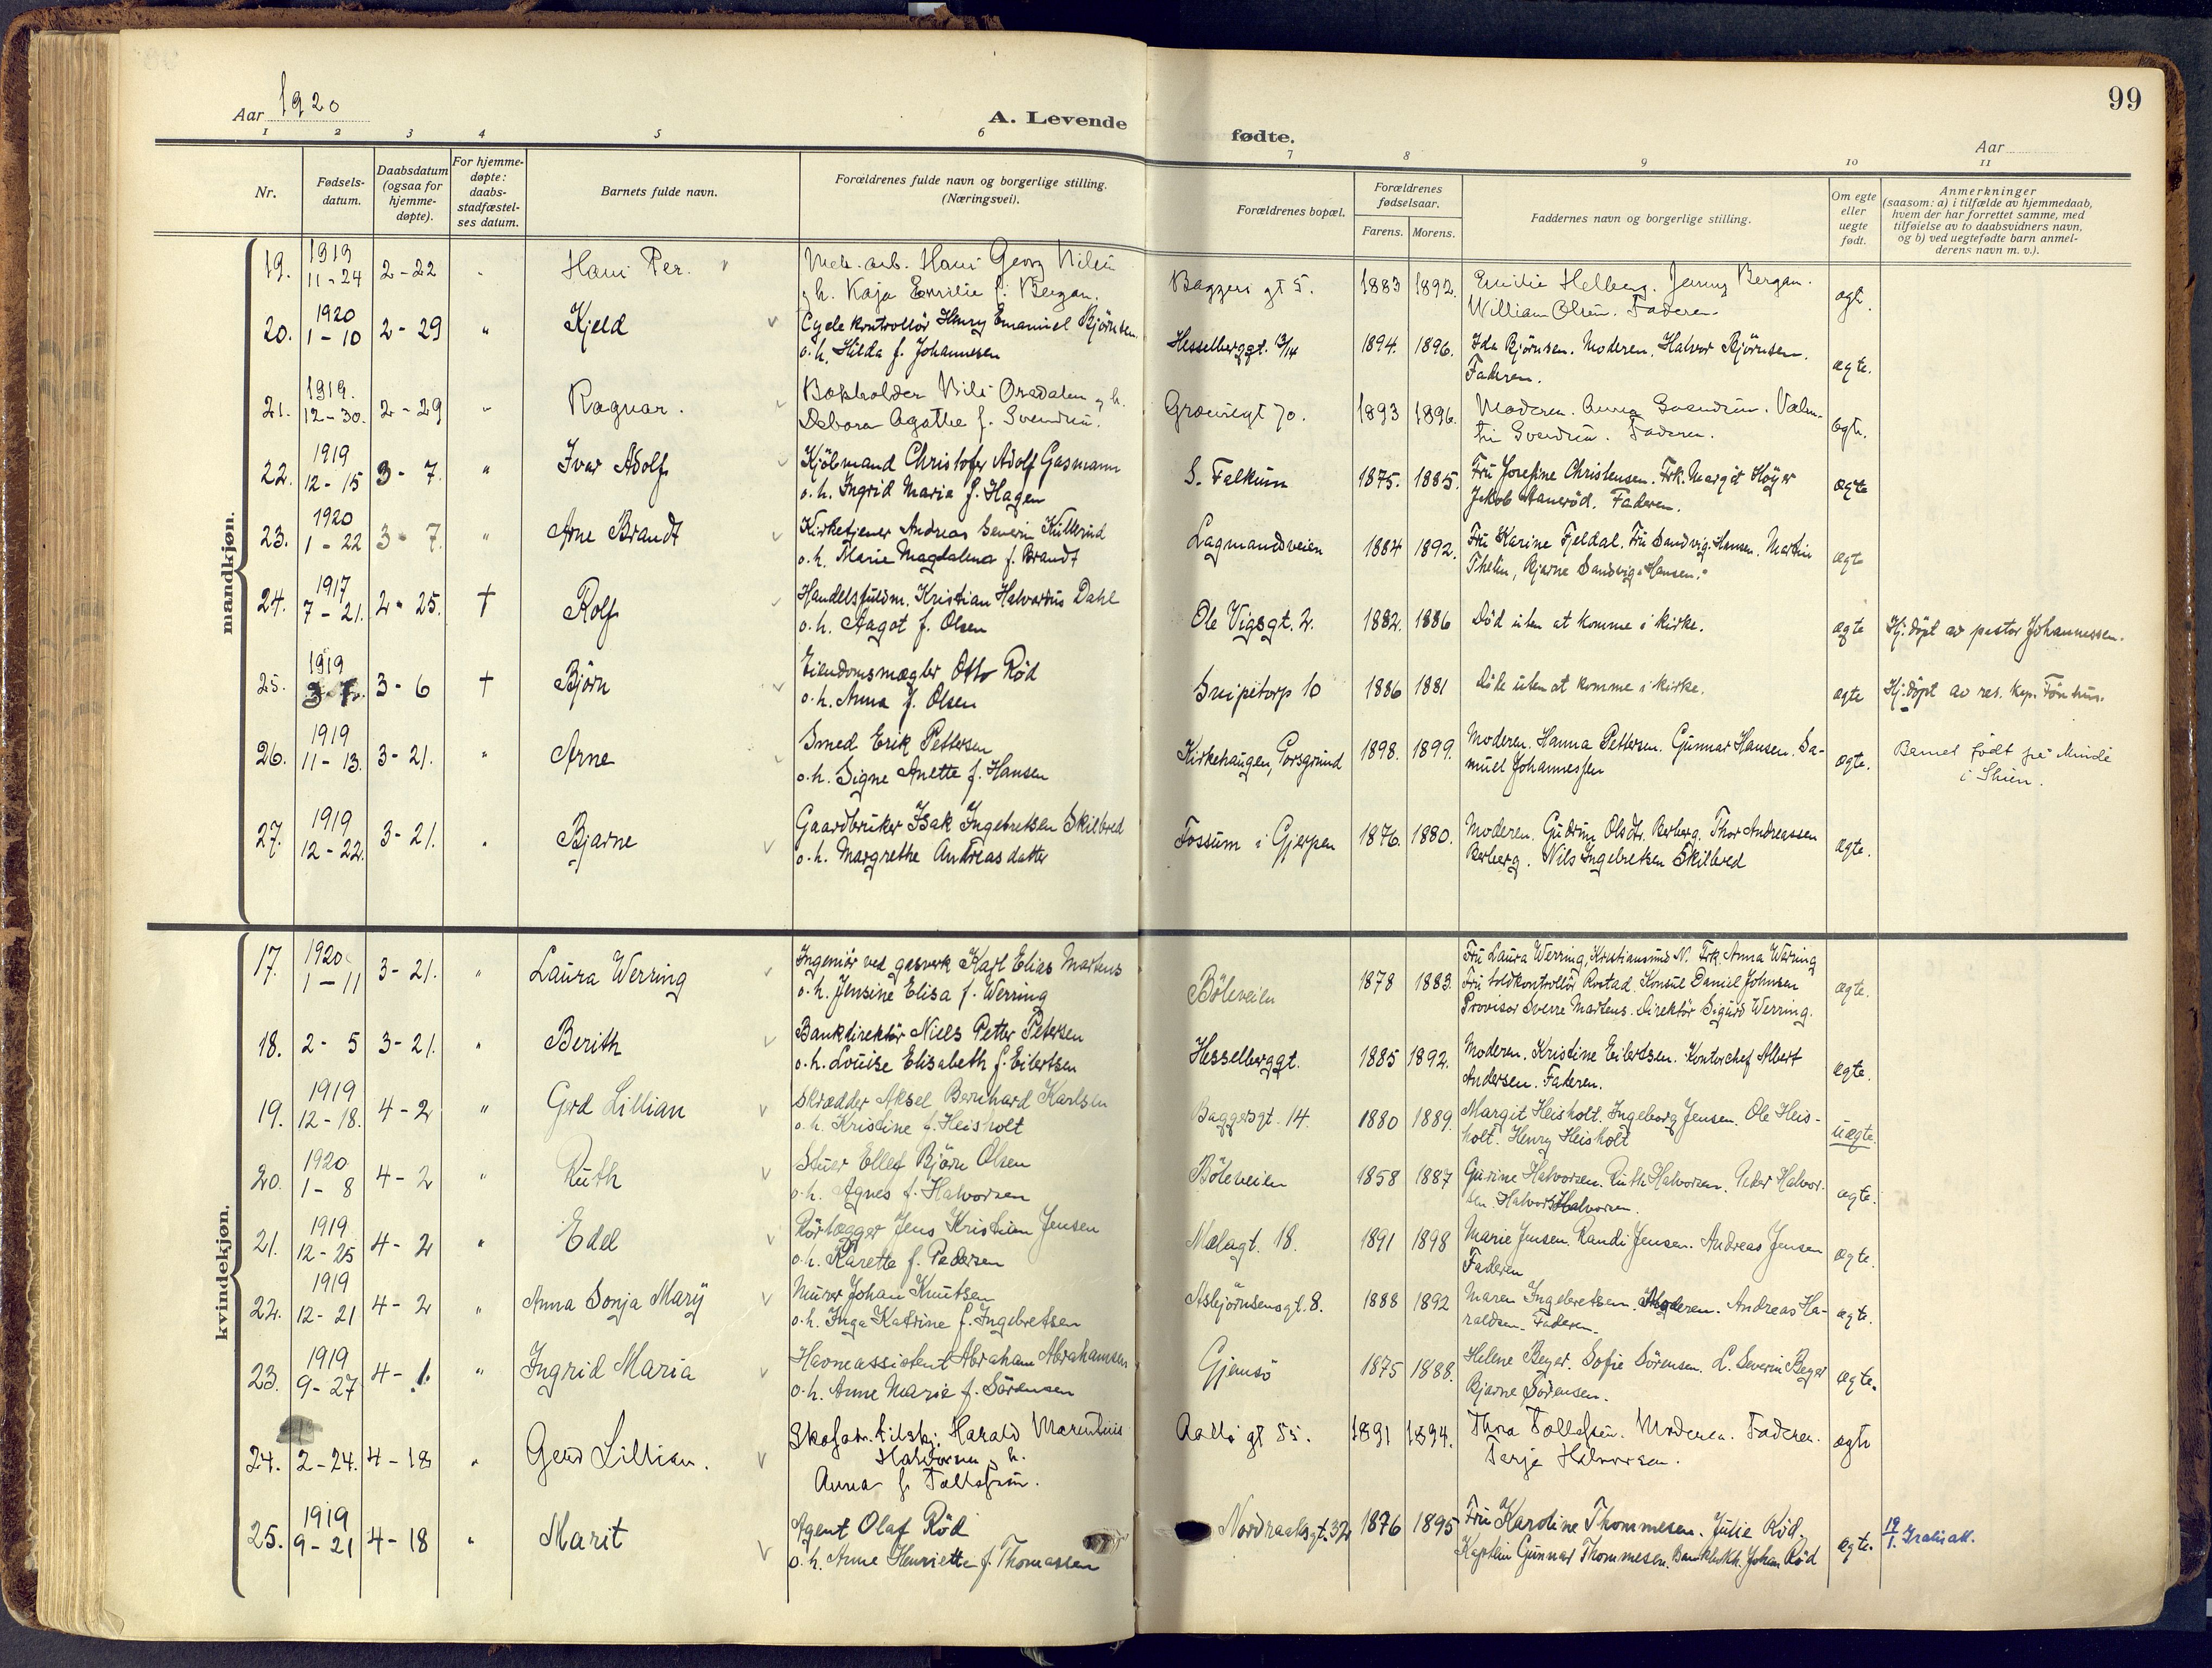 Aar 1920
A. Levende
fødte.
99
Aar
1 2 3 4 5 6 7 8 9 10 11
Nr.
Fødsels-
datum.
Daabsdatum
(ogsaa for
hjemme-
døpte).
For hjemme-
døpte:
daabs-
stadfæstel-
ses datum.
Barnets fulde navn.
Forældrenes fulde navn og borgerlige stilling.
(Næringsvei).
Forældrenes bopæl.
Forældrenes
fødselsaar.
Farens. Morens.
Faddernes navn og borgerlige stilling.
Om egte
eller
uegte
født.
Anmerkninger
(saasom: a) i tilfælde av hjemmedaab,
hvem der har forrettet samme, med
tilføielse av to daabsvidners navn,
og b) ved uegtefødte barn anmel-
derens navn m. v.).
mandkjøn.
19. 1919 11-24 2-22 Hans Per.
Mek. arb. Hans Georg Nilsen
og h. Kaja Emilie f. Bergan.
Baggers gt 5. 1883 1892.
Emilie Helberg. Jenny Bergan.
William Olsen. Faderen.
egt.
20. 1920 1-10 2-29 " Kjeld
Cyclekontrollör Henry Emanuel Björnsen
o.h. Hilda f. Johannesen
Hesselberggt. 13/14 1894. 1896.
Ida Björnsen. Moderen. Halvor Björnsen.
Faderen.
ægte.
21. 1919. 12-30. 2-29 " Ragnar.
Bokholder Nils Oredalen og h.
Debora Agathe f. Svendsen.
Grøsnesgt 70. 1893 1896.
Moderen. Anna Svendsen. Valen-
tin Svendsen. Faderen.
egte.
22. 1919 12-15 3-7. " Ivar Adolf
Kjöbmand Christofer Adolf Gasmann
o.h. Ingrid Maria f. Hagen
S. Falkum 1875. 1885.
Fru Josefine Christensen. Frk. Margit Höyer
Jakob Aaneröd. Faderen.
ægte
23. 1920 1-22 3-7. " Arne Brandt
Kirketjener Andreas Severin Kullerud
o.h. Marie Magdalena f. Brandt
Lagmandsveien 1884 1892.
Fru Karine Fjeldal. Fru Sandvig-Hansen. Martin
Thelin, Bjarne Sandvig-Hansen.
ægte
24. 1917 7-21. 2-25. † Rolf
Handelsfuldm. Kristian Halvardus Dahl
o.h. Aagot f. Olsen
Ole Vigsgt. 2. 1882. 1886
Död uten at komme i kirke.
ægte Hj. döpt av pastor Johannessen.
25. 1919 3-7. 3-6 † Björn
Eiendomsmægler Otto Röd
o.h. Anna f. Olsen
Snipetorp 10 1886 1881
Döde uten at komme i kirke.
ægte Hj. döpt av res. kap. Tönnessen.
26. 1919 11-13. 3-21. " Arne
Smed Erik Pettersen
o.h. Signe Anette f. Hansen
Kirkehaugen, Porsgrund 1898. 1899.
Moderen. Hanna Pettersen. Gunnar Hansen. Sa-
muel Johannessen
ægte. Barnet födt på Minde
i Skien.
27. 1919 12-22. 3-21. " Bjarne
Gaardbruker Isak Ingebretsen Skilbred
o.h. Margrethe Andreasdatter
Fossum i Gjerpen 1876. 1880.
Moderen. Gudrun Olsdtr. Berberg. Thor Andreassen
Berberg. Nils Ingebretsen Skilbred
ægte.
kvindekjøn.
17. 1920 1-11 3-21. " Laura Werring
Ingeniör ved gasverk Karl Elias Martens
o.h. Jensine Elisa f. Werring
Böleveien 1878 1883.
Fru Laura Werring, Kristiansund N. Frk. Anna Wæring
Fru toldkontrollör Rostad. Konsul Daniel Johnsen
Provisor Sverre Martens. Direktör Sigurd Werring.
ægte.
18. 2-5 3-21. " Berith
Bankdirektör Niels Petter Petersen
o.h. Louise Elisabeth f. Eilertsen
Hesselberggt. 1885 1892.
Moderen. Kristine Eilertsen. Kontorchef Albert
Andersen. Faderen.
ægte.
19. 1919 12-18. 4-2 " Gerd Lillian
Skrædder Aksel Bernhard Karlsen
o.h. Kristine f. Heisholt
Baggersgt. 14. 1880 1889.
Margit Heisholt. Ingeborg Jensen. Ole Heis-
holt. Henry Heisholt
uægte.
20. 1920 1-8 4-2 " Ruth
Stuer Ellef Björn Olsen
o.h. Agnes f. Halvorsen
Böleveien 1858 1887
Gurine Halvorsen. Ruth Halvorsen. Peder Halvor-
sen. Halvor Halvorsen.
ægte.
21. 1919 12-25 4-2 " Edel
Rörlægger Jens Kristian Jensen
o.h. Karette f. Pedersen
Mælagt. 18. 1891 1898
Marie Jensen. Randi Jensen. Andreas Jensen
Faderen
ægte.
22. 1919 12-21 4-2 " Anna Sonja Mary
Murer Johan Knutsen
o.h. Inga Katrine f. Ingebretsen
Asbjörnsensgt. 8. 1888 1892
Maren Ingebretsen. Moderen. Andreas Ha-
raldsen. Faderen.
ægte.
23. 1919 9-27 4-1. " Ingrid Maria
Havneassistent Abraham Abrahamsen
o.h. Anne Marie f. Sörensen
Gjemsö 1875 1888.
Helene Beyer. Sofie Sörensen. L. Severin Beyer
Bjarne Sörensen.
ægte.
24. 2-24. 4-18 " Gerd Lillian.
Skofabr. tilskj. Harald Marentius
Halvorsen og h.
Anna f. Tollefsen.
Aalls gt 55. 1891 1894.
Thora Tollefsen. Moderen. Faderen.
Terje Halvorsen.
egte
25. 1919 9-21 4-18 " Marit
Agent Olaf Röd
o.h. Anne Henriette f. Thomassen
Nordraaksgt. 32 1876 1895
Fru Karoline Thommesen. Julie Röd.
Kaptein Gunnar Thommesen. Bankbokh. Johan Röd
ægte. 19/1. Gratis att.